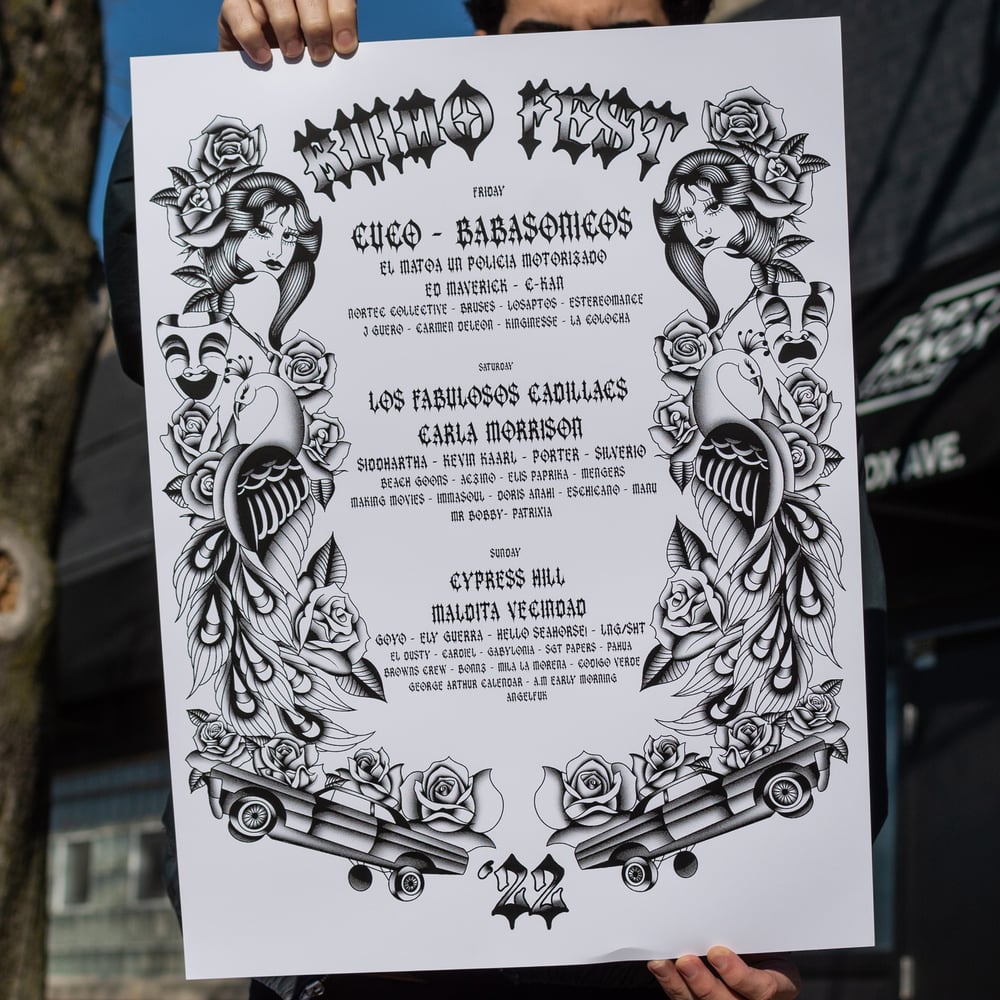 RUIDO FEST
FRIDAY
CUCO - BABASONICOS
EL MATOA UN POLICIA MOTORIZADO
ED MAVERICK - C-KAN
NORTEC COLLECTIVE - BRUSES - LOSAPTOS - ESTEREOMANCE
J GUERO - CARMEN DELEON - KINGINESSE - LA COLOCHA
SATURDAY
LOS FABULOSOS CADILLACS
CARLA MORRISON
SIDDHARTHA - KEVIN KAARL - PORTER - SILVERIO
BEACH GOONS - AC3INO - ELIS PAPRIKA - MENGERS
MAKING MOVIES - IMMASOUL - DORIS ANAHI - ESCHICANO - MANU
MR BOBBY- PATRIXIA
SUNDAY
CYPRESS HILL
MALDITA VECINDAD
GOYO - ELY GUERRA - HELLO SEAHORSE! - LNG/SHT
EL DUSTY - CARDIEL - GABYLONIA - SGT PAPERS - PAHUA
BROWNS CREW - BONN3 - MILA LA MORENA - CODIGO VERDE
GEORGE ARTHUR CALENDAR - A.M EARLY MORNING
ANGELFUK
'22
FORT
KNOX
OX AVE.